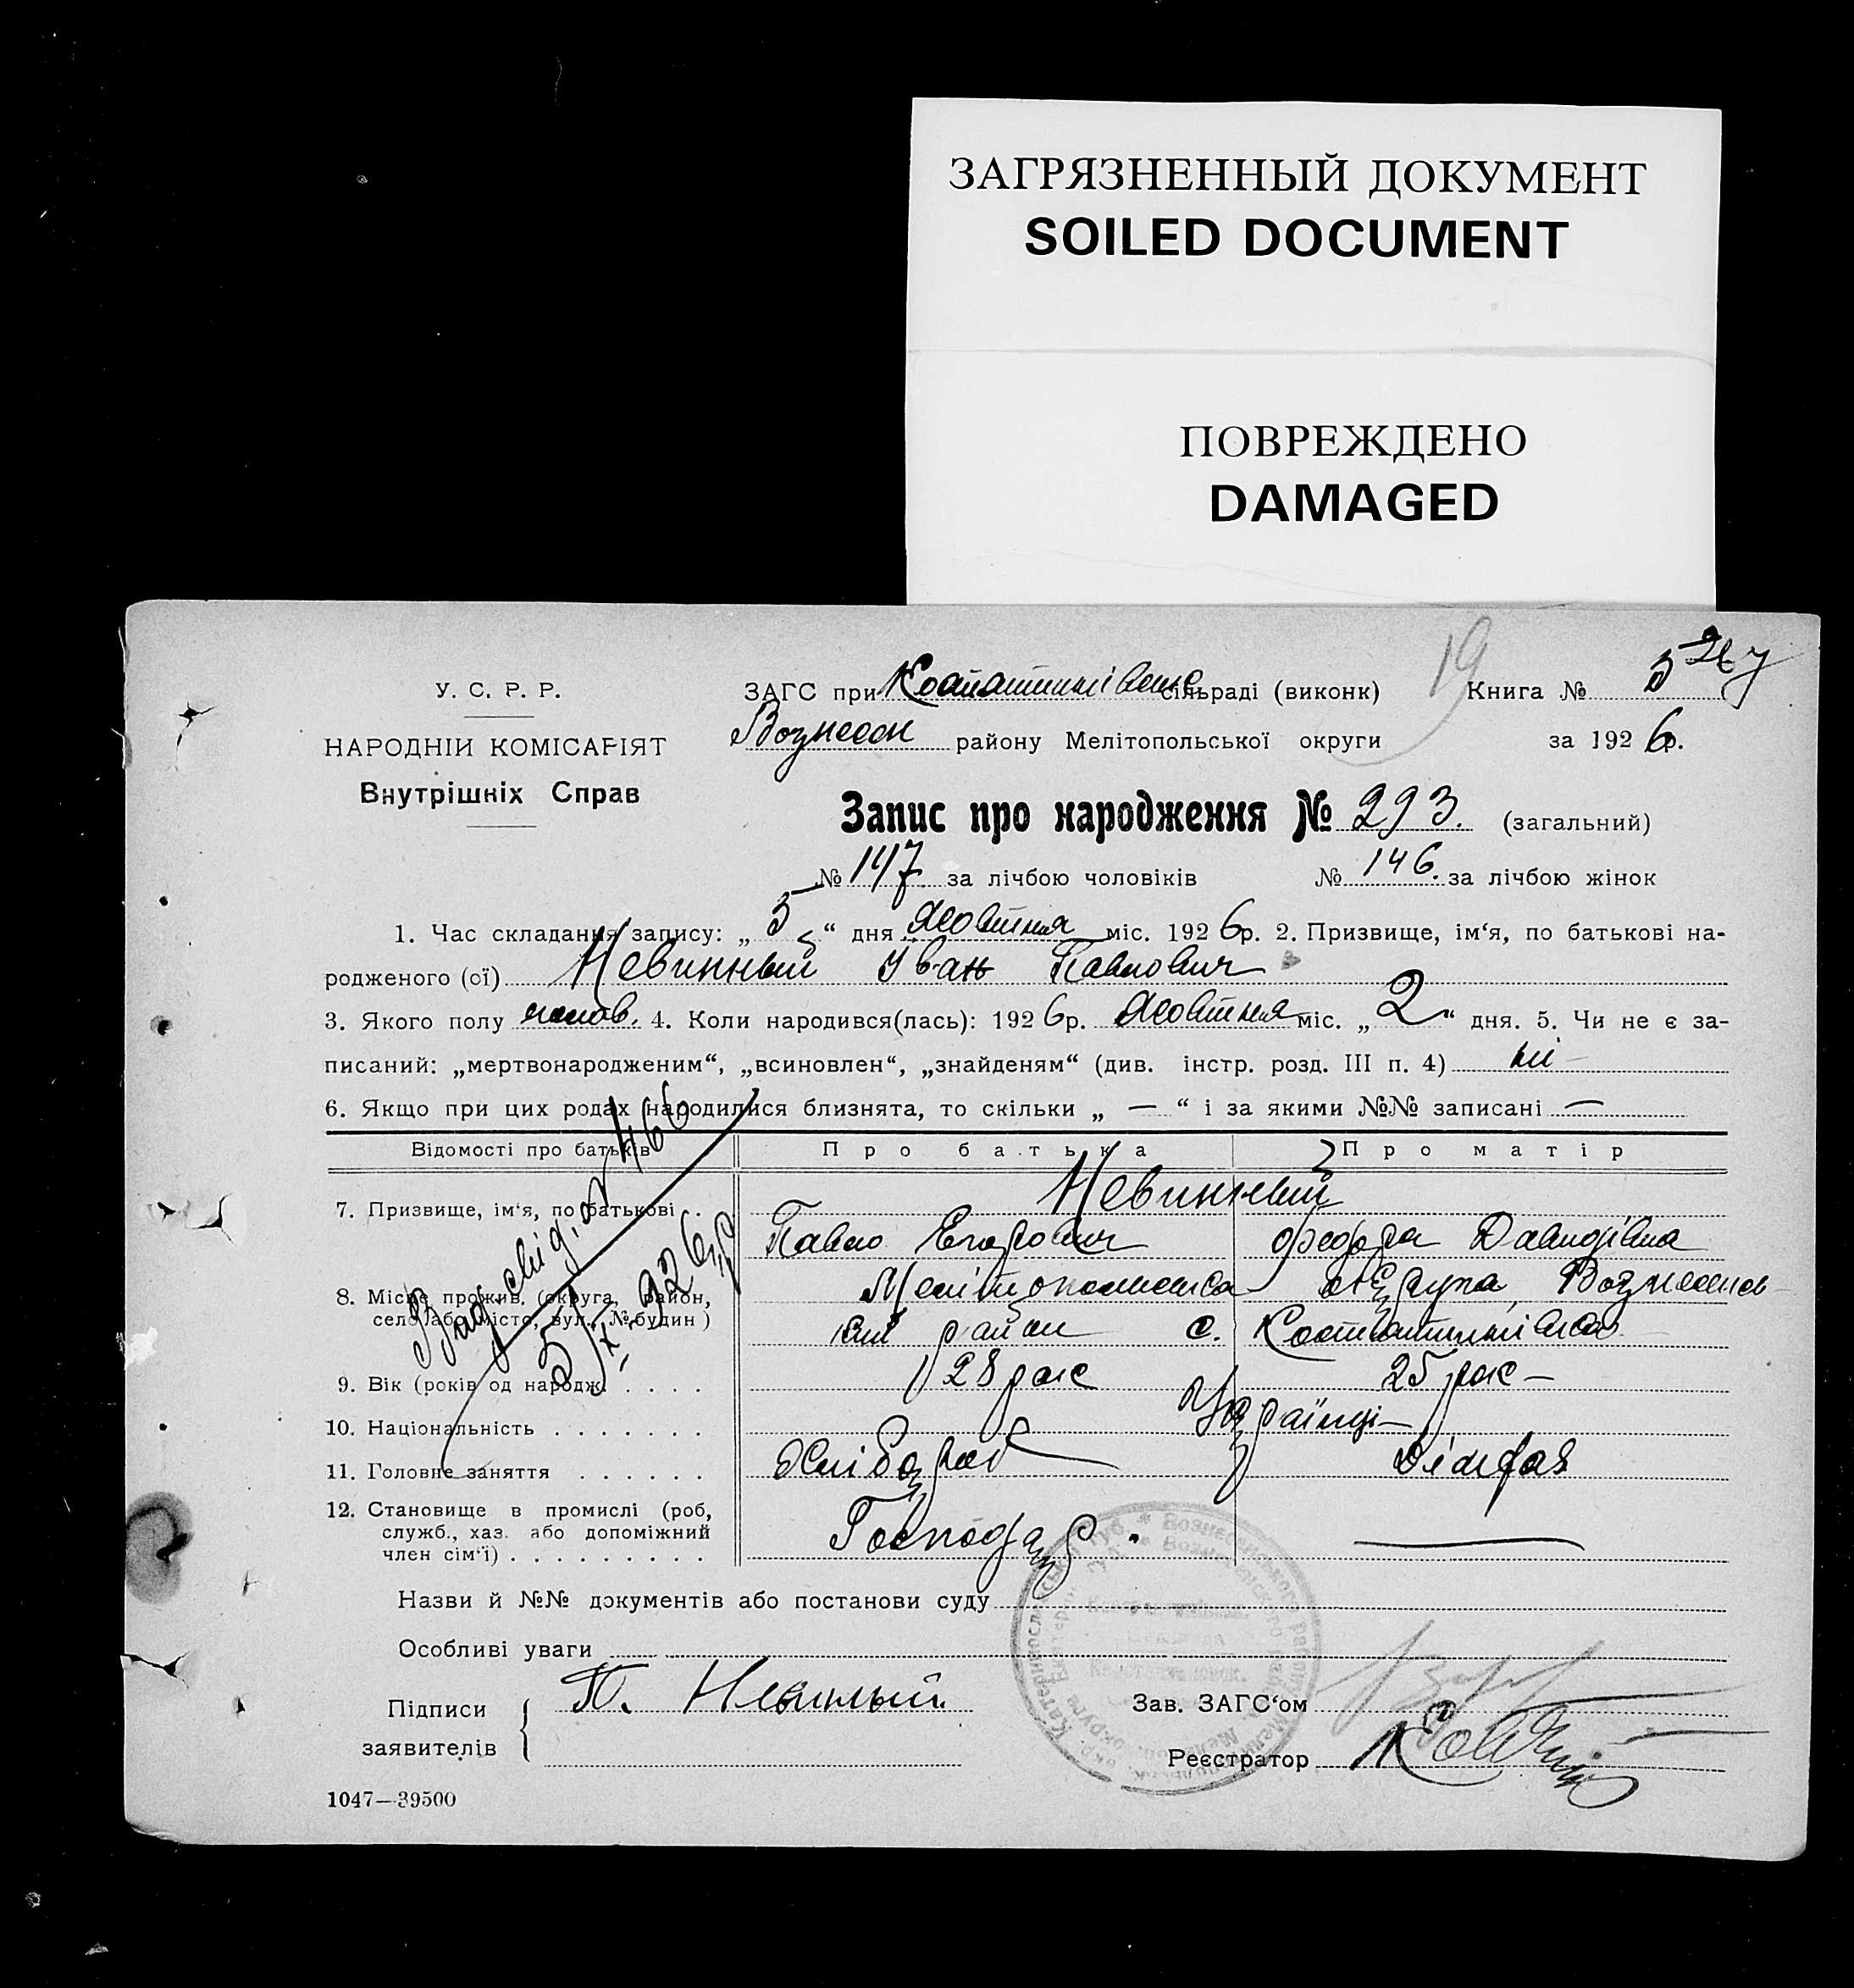 ЗАГРЯЗНЕННЫЙ ДОКУМЕНТ
SOILED DOCUMENT
ПОВРЕЖДЕНО
DAMAGED
19
У. С. Р. Р.
НАРОДНІЙ КОМІСАРІЯТ
Внутрішніх Справ
ЗАГС при сільраді (виконк) Книга № 5
Вознесен району Мелітопольської округи за 1926 р.
Запис про народження № 293. (загальний)
№ 147 за лічбою чоловіків № 146. за лічбою жінок
1. Час складання запису: „ 5 “ дня Жовтня міс. 1926 р. 2. Призвище, ім‘я, по батькові на-
родженого (ої) Невинный Іван Павлович
3. Якого полу чолов. 4. Коли народився(лась): 1926 р. Жовтня міс. „ 2 “ дня. 5. Чи не є за-
писаний: „мертвонародженим“, „всиновлен“, „знайденям“ (див. інстр. розд. III п. 4) ні —
6. Якщо при цих родах народилися близнята, то скільки „ — “ і за якими №№ записані —
Відомості про батьків Про батька Про матір
7. Призвище, ім‘я, по батькові . . Невинный
Павло Егорович Федора Давидівна
8. Місце прожив. (округа, район,
село або місто, вул., № будин) Мелітопольська округа, Вознесенсь-
кий район с. Костянтинівка
9. Вік (років од народж. . . . . 28 рок 25 рок —
10. Національність . . . . . . . Українці —
11. Головне заняття . . . . . . Хлібороб
12. Становище в промислі (роб,
служб., хаз. або допоміжний
член сім‘ї) . . . . . . . . . Господар. —
Видан свід. № 466
5/X-926 р
Назви й №№ документів або постанови суду
Особливі уваги
Підписи
заявителів
П. Невинный
Зав. ЗАГС‘ом
Реєстратор
1047—39500